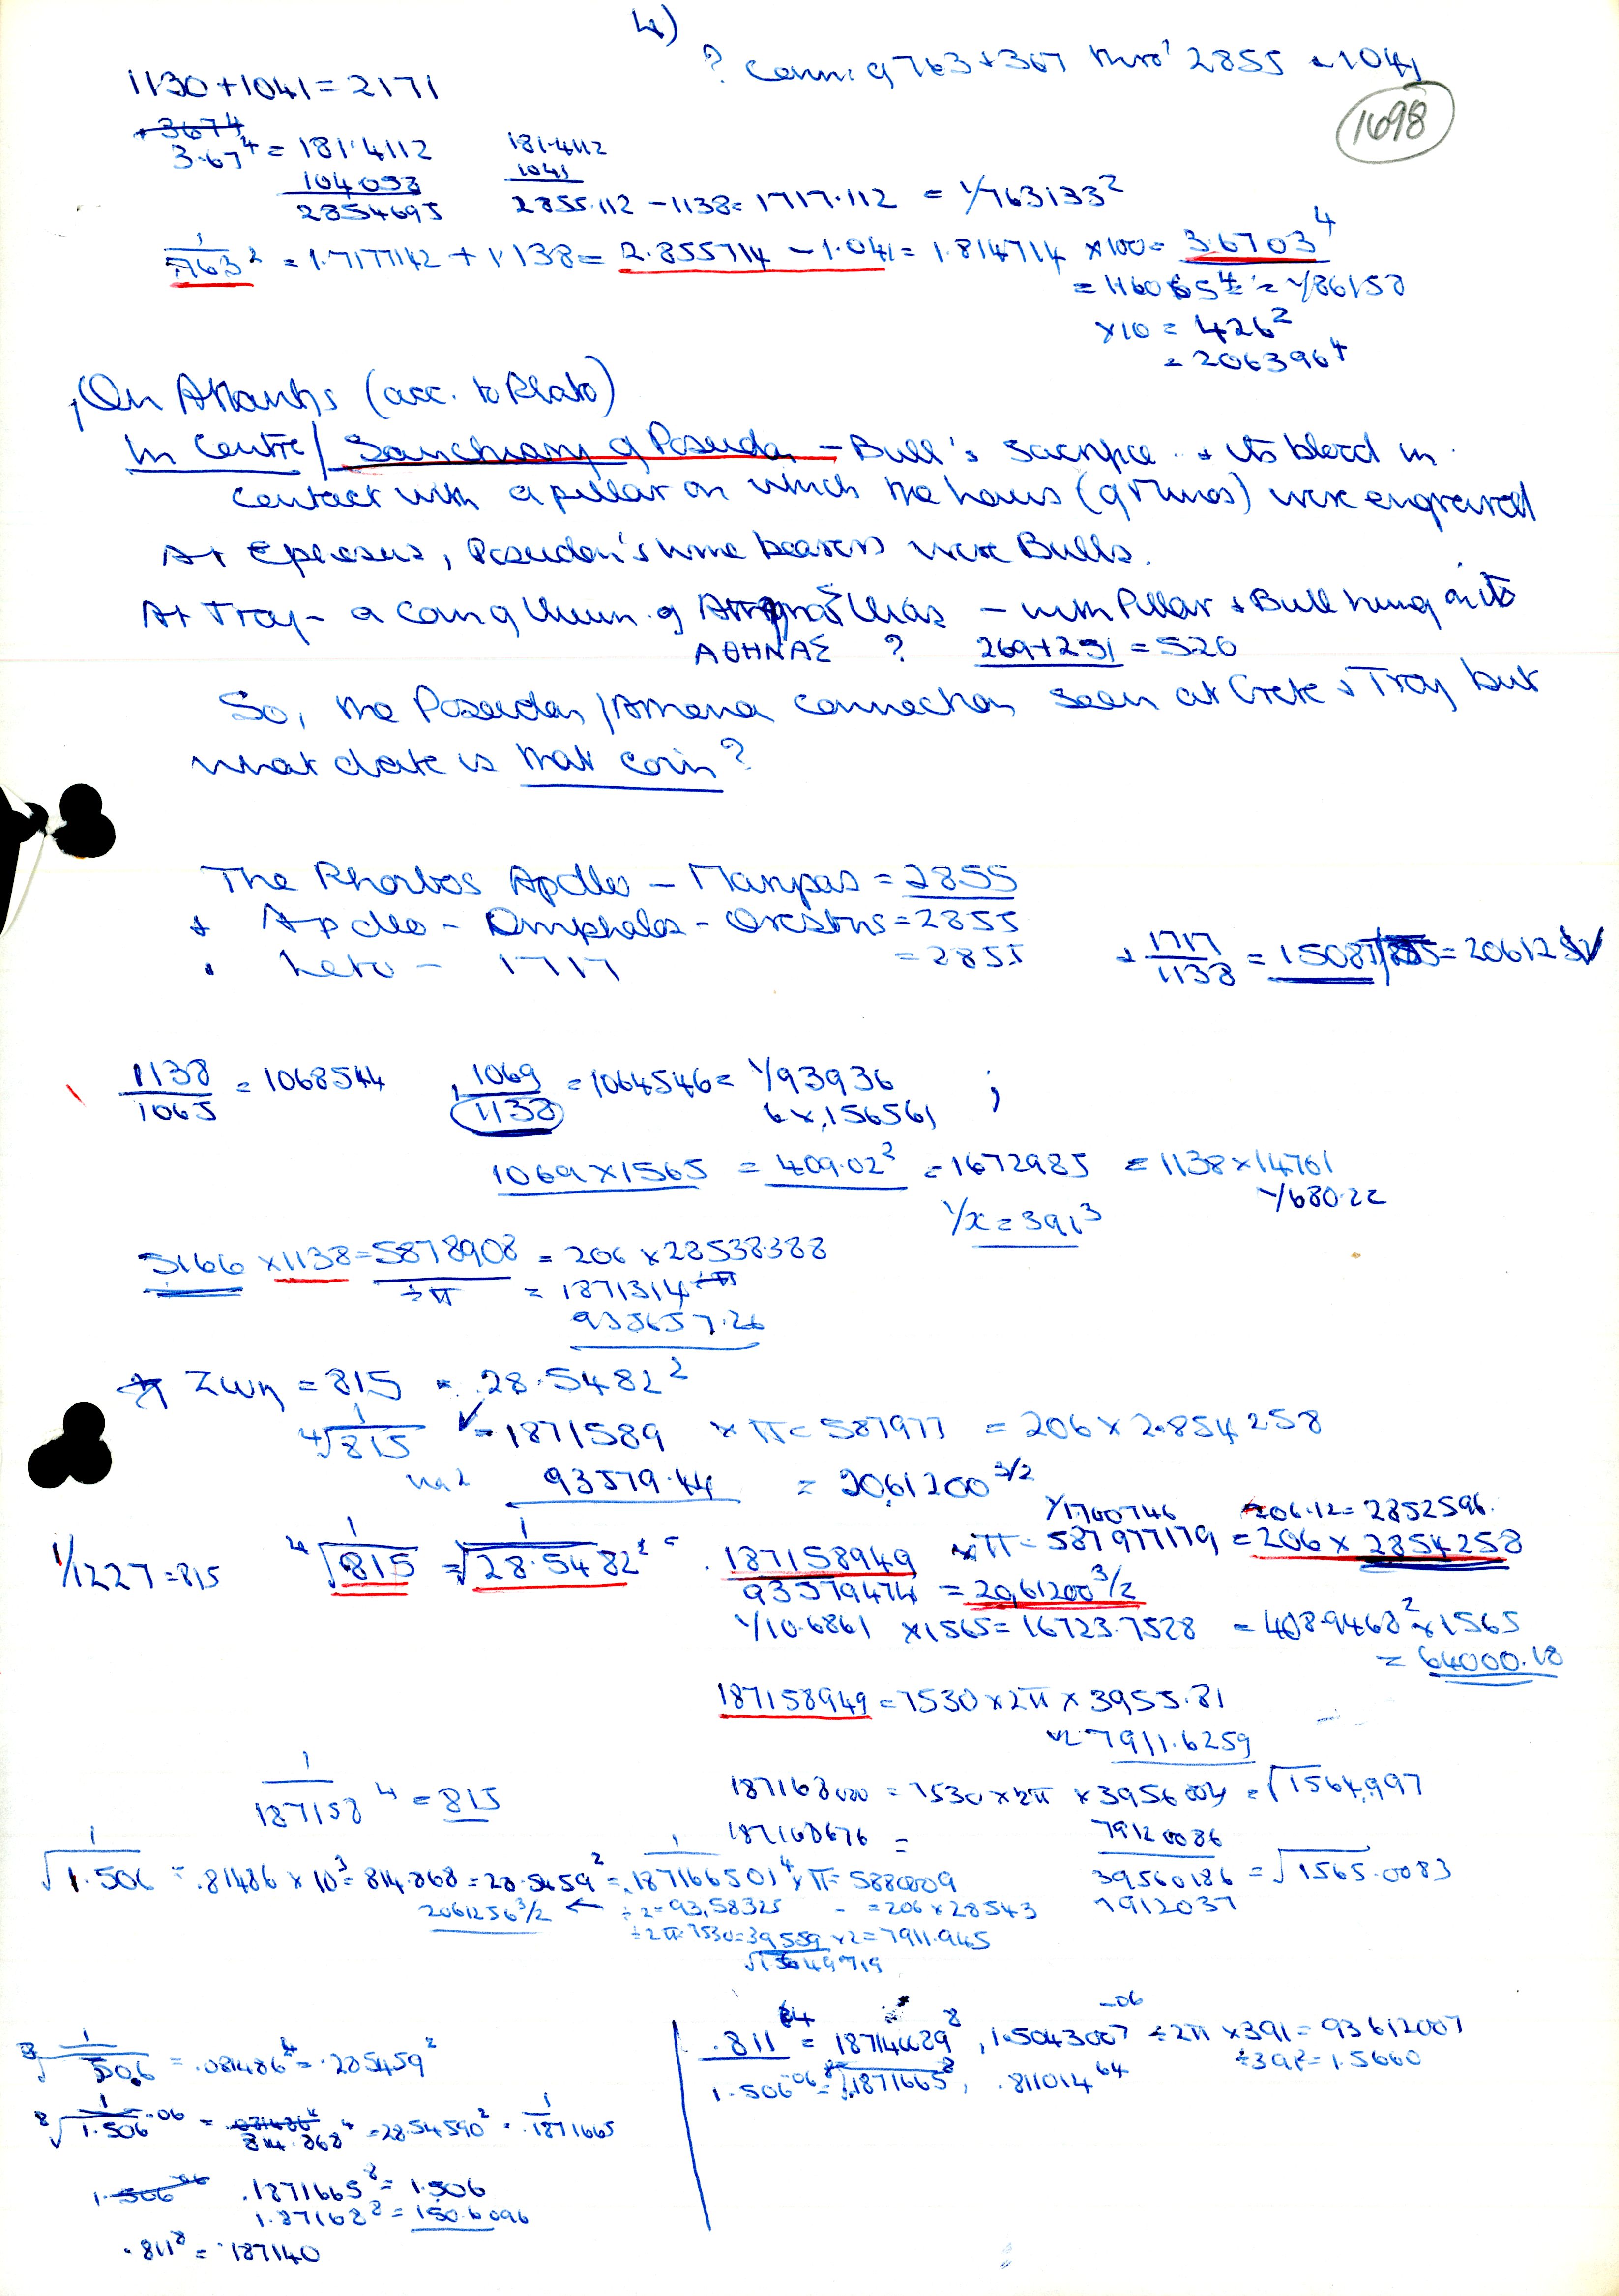 4)
? Conn: of 763 + 367 thro' 2855 - 1041
1698
1130 + 1041 = 2171
3.67⁴ = 181.4112
104 053
2854695
181.4112
1041
2855.112 - 1138 = 1717.112 = 1/763133²
1/.763² = 1.7177142 + 1.138 = 2.855714 - 1.041 = 1.814714 ×100 = 3.6703⁴
= 1/86158
×10 = 426²
= 206396⁴
On Atlantis (acc. to Plato)
In Centre / Sanctuary of Poseidon - Bull's sacrifice + its blood in
contact with a pillar on which the laws (of Minos) were engraved
At Ephesus, Poseidon's wine bearers were Bulls.
At Troy - a coin of Ilium of Ilias - with Pillar & Bull hung on it
ΑΘΗΝΑΣ ? 269 + 251 = 520
So, the Poseidon / Athena connection seen at Crete & Troy but
what date is that coin?
The Phoibos Apollo - Marpas = 2855
+ Apollo - Omphalos - Orestes = 2855
Leto - 1717 = 2855
1717/1138 = 15087 = 20612
1138/1065 = 1068544
1069/1138 = 1064546 = 1/93936 ;
6 × .156561
1069 × 1565 = 409.02² = 1672985 = 1138 × 14701
1/680.22
1/x = 391³
5166 × 1138 = 5878908 = 206 × 28538.388
÷π = 1871314
935657.26
Ζωη = 815 = 28.5482²
⁴√1/815 = 1871589 × π = 587977 = 206 × 2.854258
93579.44 = 20,61200^3/2
1/1700746 206.12 = 2852596.
1/1227 = 815
⁴√1/815 = √1/28.5482² = .187158949 × π = 587977179 = 206 × 2854258
93579474 = 20,61200^3/2
1/10.6861 × 1565 = 16723.7528 = 408.9468² × 1565
= 64000.18
187158949 = 7530 × 2π × 3955.81
×2 7911.6259
1/187158⁴ = 815
187168000 = 7530 × 2π × 3956004 = √1564,997
187168676 = 79120086
√1/1.506 = .81486 × 10³ = 814.868 = 28.5459² = 1/.187166501⁴ × π = 5880009
39560186 = √1565.0083
7912037
2061256^3/2 ← ÷2 = 93,58325 = 206 × 28543
÷2π ÷ 7530 = 39559 × 2 = 7911.945
√15649719
.081486⁴ = .285459²
⁸√1/1.506⁻⁰⁶ = 814.868⁴ = 28.54590² = 1/.1871665
.1871665⁸ = 1.506
1.87168⁸ = 150.6096
.811⁸ = .187140
.811⁶⁴ = 18714029⁸, 1.5043007⁻⁰⁶ ÷ 2π × 391 = 93612007
÷391² = 1.5660
1.506⁻⁰⁶ = .1871665⁸, .811014⁶⁴